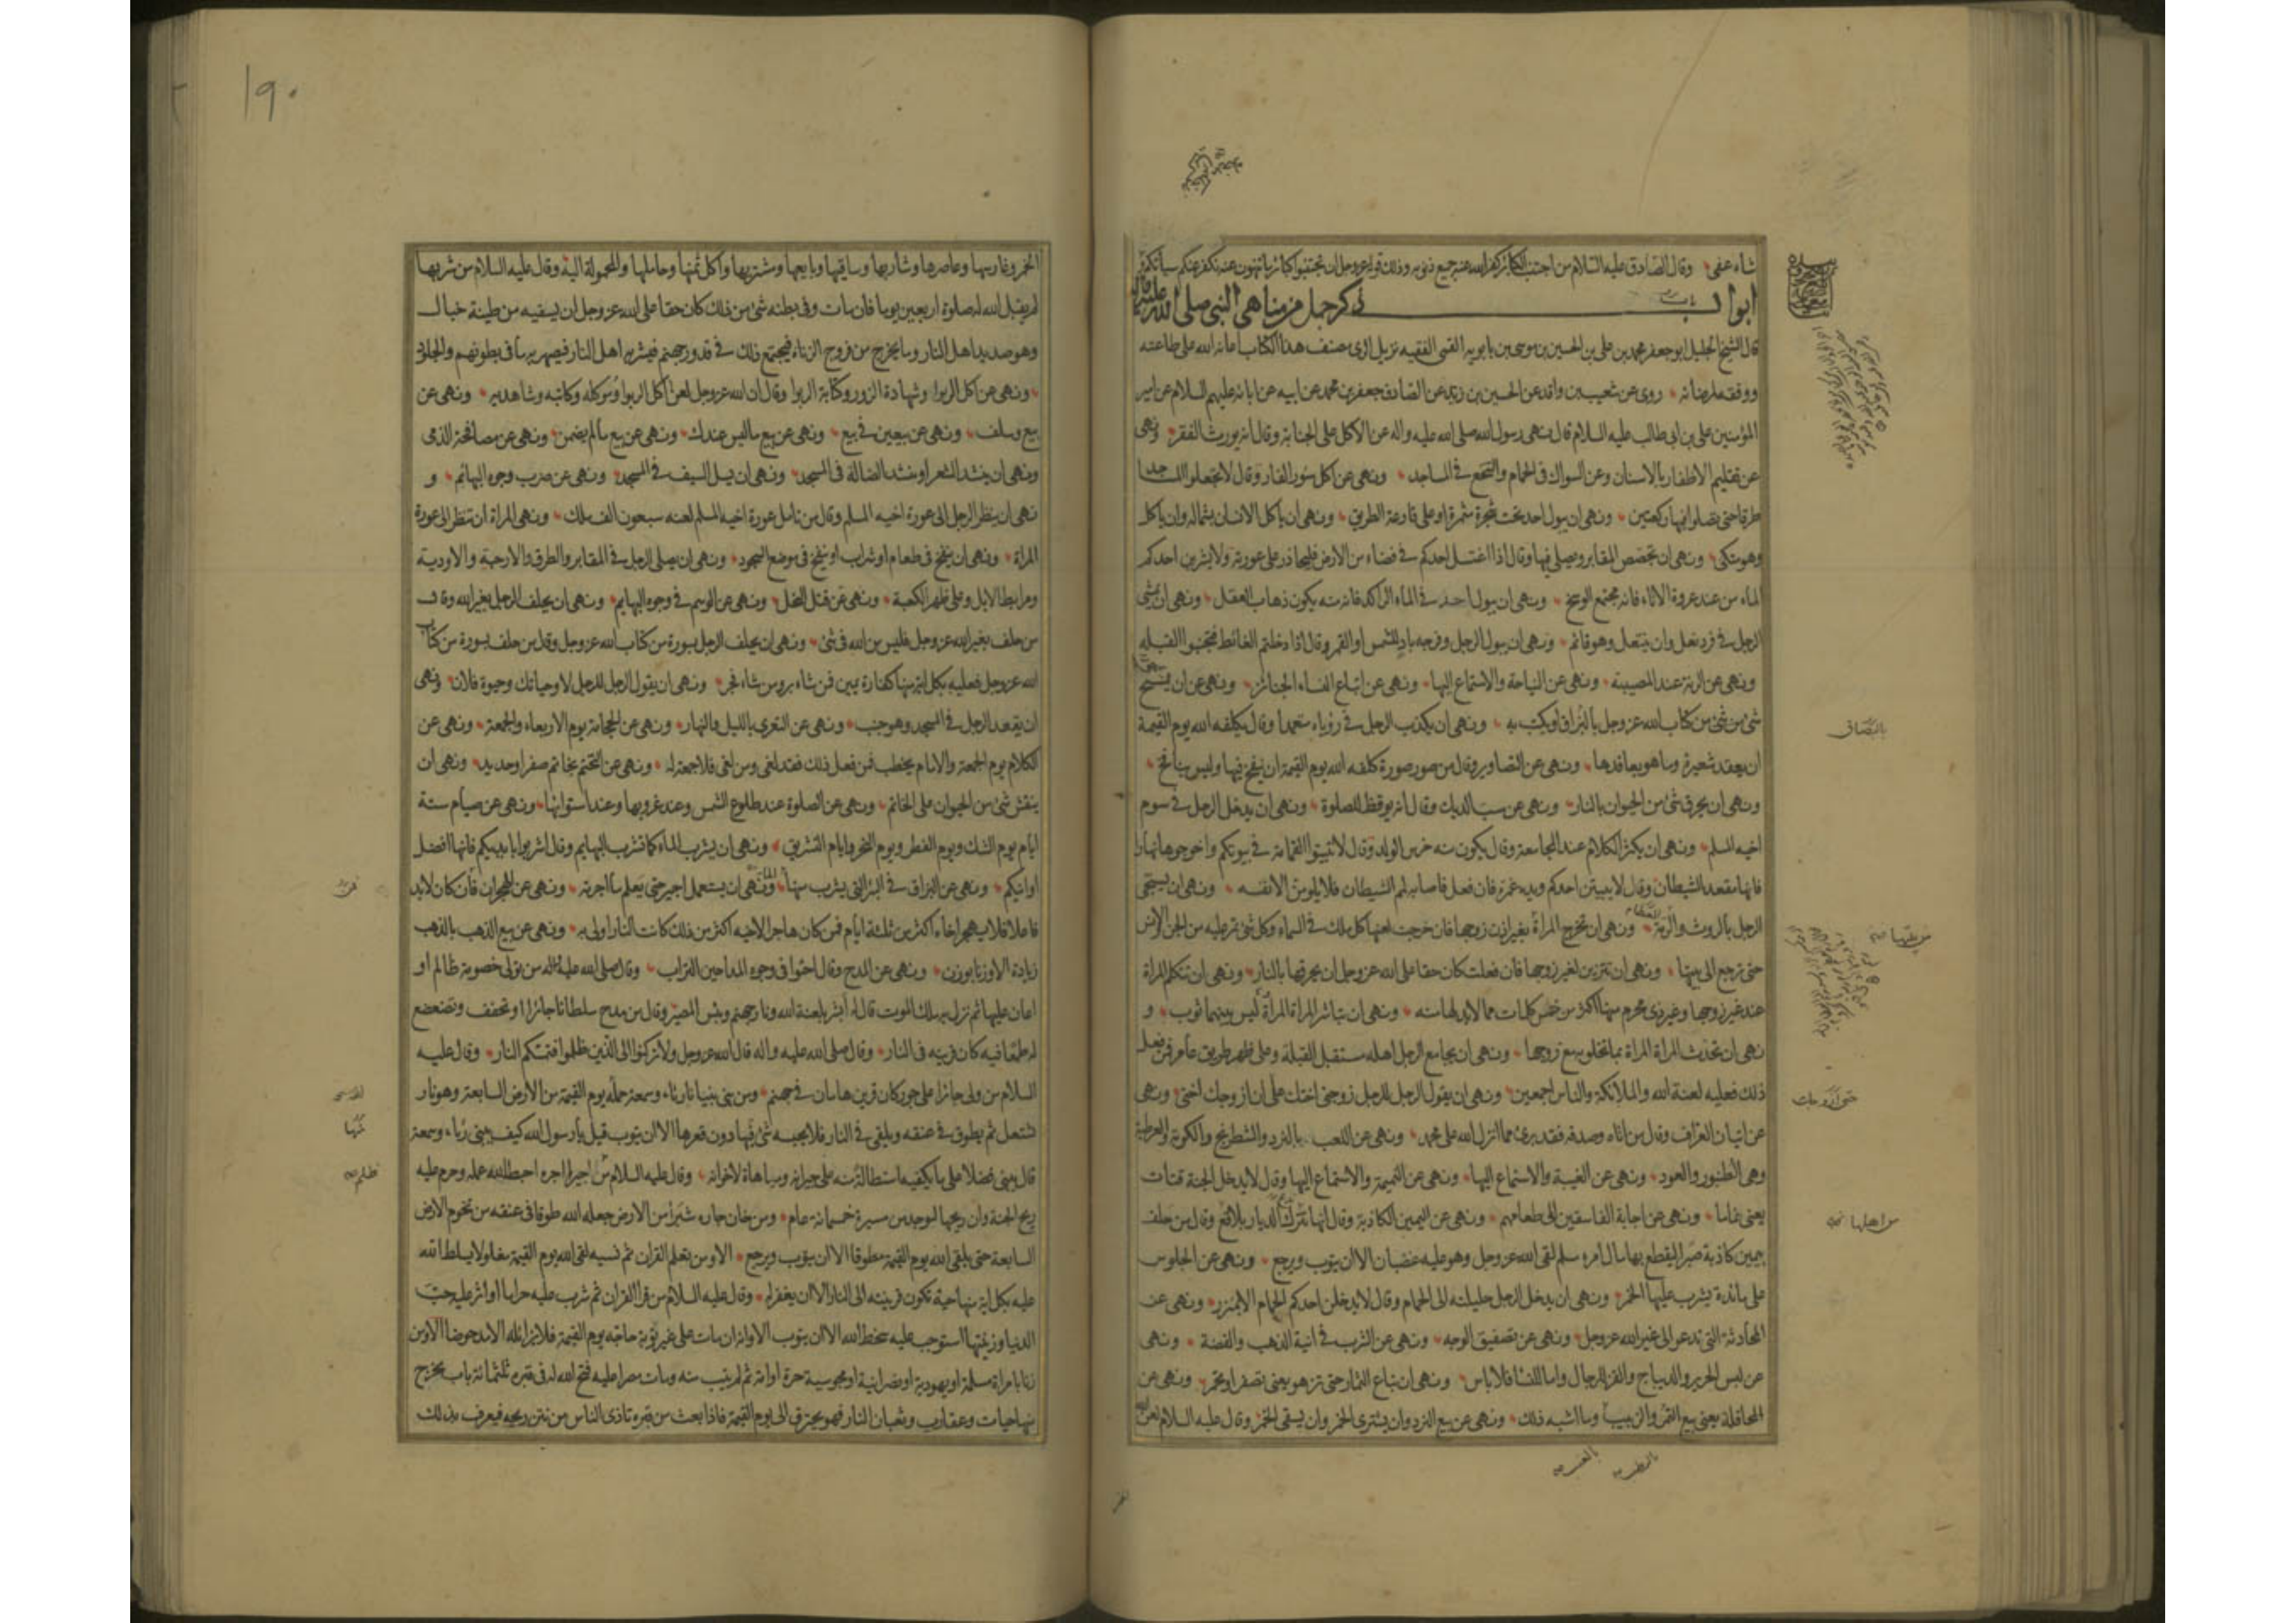 شاء عفى وقال الصادق عليه السلام من اجتنب الكبائر كفر الله عنه جميع ذنوبه وذلك قوله عز وجل ان تجتنبوا كبائر ما تنهون عنه نكفر عنكم سيئاتكم
ابواب ذكر جمل من مناهي النبي صلى الله عليه واله
قال الشيخ الجليل ابو جعفر محمد بن على بن الحسين بن موسى بن بابويه القمى الفقيه نزيل الرى مصنف هذا الكتاب اعانه الله على طاعته
ووفقه لمرضاته روى عن شعيب بن واقد عن الحسين بن زيد عن الصادق جعفر بن محمد عن ابيه عن ابائه عليهم السلام عن امير
المؤمنين على بن ابى طالب عليه السلام قال نهى رسول الله صلى الله عليه واله عن الاكل على الجنابة وقال انه يورث الفقر ونهى
عن تقليم الاظفار بالاسنان وعن السواك فى الحمام والتنخع فى المساجد ونهى عن اكل سؤر الفار وقال لا تجعلوا المساجد
طرقا حتى تصلوا فيها ركعتين ونهى ان يبول احد تحت شجرة مثمرة او على قارعة الطريق ونهى ان ياكل الانسان بشماله وان ياكل
وهو متكئ ونهى ان تجصص المقابر ويصلى فيها وقال اذا اغتسل احدكم فى فضاء من الارض فليحاذر على عورته ولا يشربن احدكم
الماء من عند عروة الاناء فانه مجتمع الوسخ ونهى ان يبول احد فى الماء الراكد فانه منه يكون ذهاب العقل ونهى ان يمشى
الرجل فى فرد نعل وان يتنعل وهو قائم ونهى ان يبول الرجل وفرجه باد للشمس او القمر وقال اذا دخلتم الغائط فتجنبوا القبلة
ونهى عن الرنة عند المصيبة ونهى عن النياحة والاستماع اليها ونهى عن اتباع النساء الجنائز ونهى عن ان يمسح
شئ من شئ من كتاب الله عز وجل بالبزاق او يكتب به ونهى ان يكذب الرجل فى رؤياه متعمدا وقال يكلفه الله يوم القيمة
ان يعقد شعيرة وما هو بعاقدها ونهى عن التصاوير وقال من صور صورة كلفه الله يوم القيمة ان ينفخ فيها وليس بنافخ
ونهى ان يحرق شئ من الحيوان بالنار ونهى عن سب الديك وقال انه يوقظ للصلوة ونهى ان يدخل الرجل فى سوم
اخيه المسلم ونهى ان يكثر الكلام عند المجامعة وقال يكون منه خرس الولد وقال لا تبيتوا القمامة فى بيوتكم واخرجوها نهارا
فانها مقعد الشيطان وقال لا يبيتن احدكم ويده غمرة فان فعل فاصابه لمم الشيطان فلا يلومن الا نفسه ونهى ان يستنجى
الرجل بالروث والرمة ونهى ان تخرج المراة بغير اذن زوجها فان خرجت لعنها كل ملك فى السماء وكل شئ تمر عليه من الجن والانس
حتى ترجع الى بيتها ونهى ان تتزين لغير زوجها فان فعلت كان حقا على الله عز وجل ان يحرقها بالنار ونهى ان تتكلم المراة
عند غير زوجها وغير ذى محرم منها اكثر من خمس كلمات مما لابد لها منه ونهى ان تباشر المراة المراة ليس بينهما ثوب و
نهى ان تحدث المراة المراة بما تخلو به مع زوجها ونهى ان يجامع الرجل اهله مستقبل القبلة وعلى ظهر طريق عامر فمن فعل
ذلك فعليه لعنة الله والملائكة والناس اجمعين ونهى ان يقول الرجل للرجل زوجنى اختك على ان ازوجك اختى ونهى
عن اتيان العراف وقال من اتاه وصدقه فقد برئ مما انزل الله على محمد ونهى عن اللعب بالنرد والشطرنج والكوبة والعرطبة
وهى الطنبور والعود ونهى عن الغيبة والاستماع اليها ونهى عن النميمة والاستماع اليها وقال لا يدخل الجنة قتات
يعنى نماما ونهى عن اجابة الفاسقين الى طعامهم ونهى عن اليمين الكاذبة وقال انها تترك الديار بلاقع وقال من حلف
بيمين كاذبة صبرا ليقطع بها مال امرء مسلم لقى الله عز وجل وهو عليه غضبان الا ان يتوب ويرجع ونهى عن الجلوس
على مائدة يشرب عليها الخمر ونهى ان يدخل الرجل حليلته الى الحمام وقال لا يدخلن احدكم الحمام الا بمئزر ونهى عن
المحادثة التى تدعو الى غير الله عز وجل ونهى عن تصفيق الوجه ونهى عن الشرب فى انية الذهب والفضة ونهى
عن لبس الحرير والديباج والقز للرجال واما للنساء فلا باس ونهى ان تباع الثمار حتى تزهو يعنى تصفر او تحمر ونهى عن
المحاقلة يعنى بيع التمر والزبيب وما اشبه ذلك ونهى عن بيع النرد وان يشترى الخمر وان يسقى الخمر وقال عليه السلام لعن الله
بالبصاق
من بيتها
حتى ازوجك
من اهلها
١٩٠
الخمر وغارسها وعاصرها وشاربها وساقيها وبايعها ومشتريها واكل ثمنها وحاملها والمحمولة اليه وقال عليه السلام من شربها
لم يقبل الله له صلوة اربعين يوما فان مات وفى بطنه شئ من ذلك كان حقا على الله عز وجل ان يسقيه من طينة خبال
وهو صديد اهل النار وما يخرج من فروج الزناة فيجتمع ذلك فى قدور جهنم فيشربه اهل النار فيصهر به ما فى بطونهم والجلود
ونهى عن اكل الربوا وشهادة الزور وكتابة الربوا وقال ان الله عز وجل لعن اكل الربوا وموكله وكاتبه وشاهديه ونهى عن
بيع وسلف ونهى عن بيعين فى بيع ونهى عن بيع ما ليس عندك ونهى عن بيع ما لم يضمن ونهى عن مصافحة الذمى
ونهى ان ينشد الشعر او ينشد الضالة فى المسجد ونهى ان يسل السيف فى المسجد ونهى عن ضرب وجوه البهائم و
نهى ان ينظر الرجل الى عورة اخيه المسلم وقال من تامل عورة اخيه المسلم لعنه سبعون الف ملك ونهى المراة ان تنظر الى عورة
المراة ونهى ان ينفخ فى طعام او شراب او ينفخ فى موضع السجود ونهى ان يصلى الرجل فى المقابر والطرق والارحية والاودية
ومرابط الابل وعلى ظهر الكعبة ونهى عن قتل النحل ونهى عن الوسم فى وجوه البهايم ونهى ان يحلف الرجل بغير الله وقال
من حلف بغير الله عز وجل فليس من الله فى شئ ونهى ان يحلف الرجل بسورة من كتاب الله عز وجل وقال من حلف بسورة من كتاب
الله عز وجل فعليه بكل اية منها كفارة يمين فمن شاء بر ومن شاء فجر ونهى ان يقول الرجل للرجل لا وحياتك وحيوة فلان ونهى
ان يقعد الرجل فى المسجد وهو جنب ونهى عن التعرى بالليل والنهار ونهى عن الحجامة يوم الاربعاء والجمعة ونهى عن
الكلام يوم الجمعة والامام يخطب فمن فعل ذلك فقد لغى ومن لغى فلا جمعة له ونهى عن التختم بخاتم صفر او حديد ونهى ان
ينقش شئ من الحيوان على الخاتم ونهى عن الصلوة عند طلوع الشمس وعند غروبها وعند استوائها ونهى عن صيام ستة
ايام يوم الشك ويوم الفطر ويوم النحر وايام التشريق ونهى ان يشرب الماء كما تشرب البهايم وقال اشربوا بايديكم فانها افضل
اوانيكم ونهى عن البزاق فى البئر التى يشرب منها ونهى ان يستعمل اجير حتى يعلم ما اجرته ونهى عن الهجران فان كان لابد
فاعلا فلا يهجر اخاه اكثر من ثلثة ايام فمن كان هاجرا لاخيه اكثر من ذلك كانت النار اولى به ونهى عن بيع الذهب بالذهب
زيادة الا وزنا بوزن ونهى عن المدح وقال احثوا فى وجوه المداحين التراب وقال صلى الله عليه واله من تولى خصومة ظالم او
اعان عليها ثم نزل به ملك الموت قال له ابشر بلعنة الله ونار جهنم وبئس المصير وقال من مدح سلطانا جائرا او تخفف وتضعضع
له طمعا فيه كان قرينه فى النار وقال صلى الله عليه واله قال الله عز وجل ولا تركنوا الى الذين ظلموا فتمسكم النار وقال عليه
السلام من ولى جائرا على جور كان قرين هامان فى جهنم ومن بنى بنيانا رئاء وسمعة حمله يوم القيمة من الارض السابعة وهو نار
تشتعل ثم يطوق فى عنقه ويلقى فى النار فلا يحبسه شئ فيها دون قعرها الا ان يتوب قيل يا رسول الله كيف يبنى رئاء وسمعة
قال يبنى فضلا على ما يكفيه استطالة منه على جيرانه ومباهاة لاخوانه وقال عليه السلام من اجيرا اجره احبط الله عمله وحرم عليه
ريح الجنة وان ريحها لتوجد من مسيرة خمسمائة عام ومن خان جاره شبرا من الارض جعله الله طوقا فى عنقه من تخوم الارض
السابعة حتى يلقى الله يوم القيمة مطوقا الا ان يتوب ويرجع الا ومن تعلم القران ثم نسيه لقى الله يوم القيمة مغلولا يسلط الله
عليه بكل اية منها حية تكون قرينته الى النار الا ان يغفر له وقال عليه السلام من قرا القران ثم شرب عليه حراما او اثر عليه حب
الدنيا وزينتها استوجب عليه سخط الله الا ان يتوب الا وانه ان مات على غير توبة حاجه يوم القيمة فلا يزايله الا مدحوضا الا ومن
زنا بامراة مسلمة او يهودية او نصرانية او مجوسية حرة او امة ثم لم يتب منه ومات مصرا عليه فتح الله له فى قبره ثلثمائة باب يخرج
منها حيات وعقارب وثعبان النار فهو يحترق الى يوم القيمة فاذا بعث من قبره تاذى الناس من نتن ريحه فيعرف بذلك
ظلم